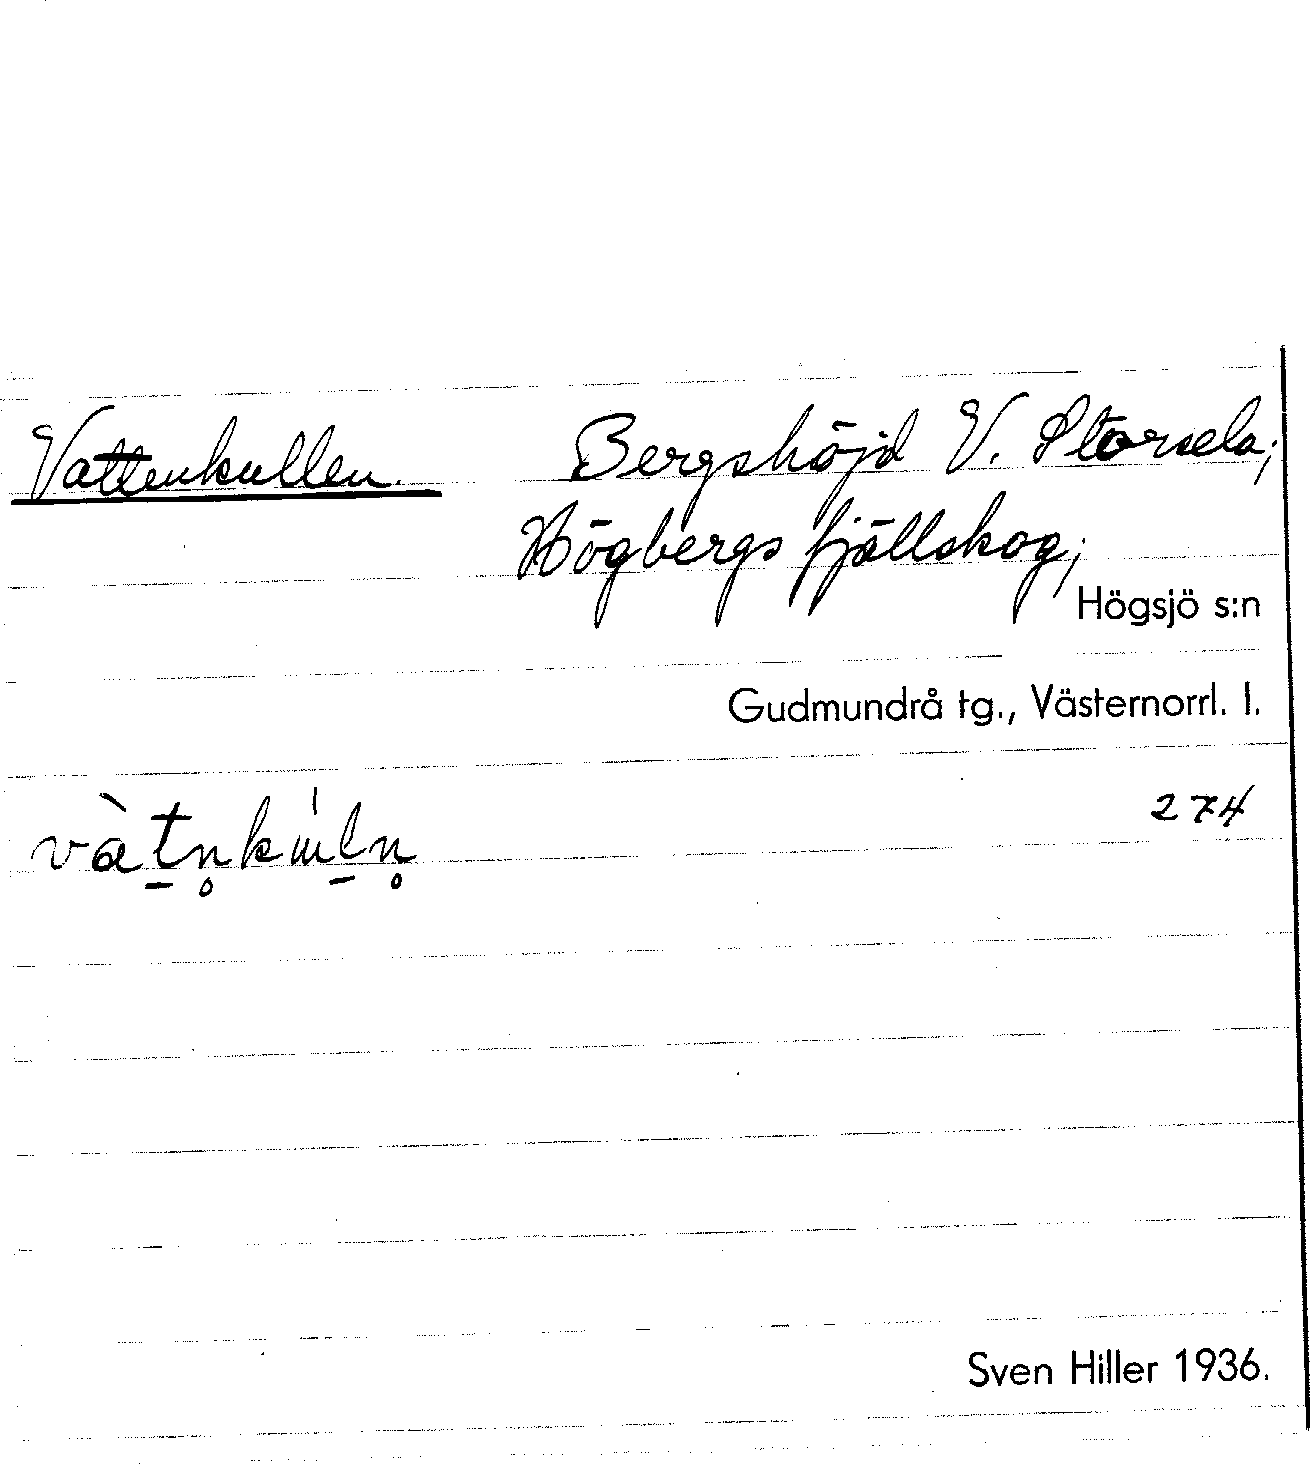 Vattenkullen. Bergshöjd V. Storsela;
Högbergs fjällskog;
Högsjö s:n
Gudmundrå tg., Västernorrl. l.
274
Sven Hiller 1936.